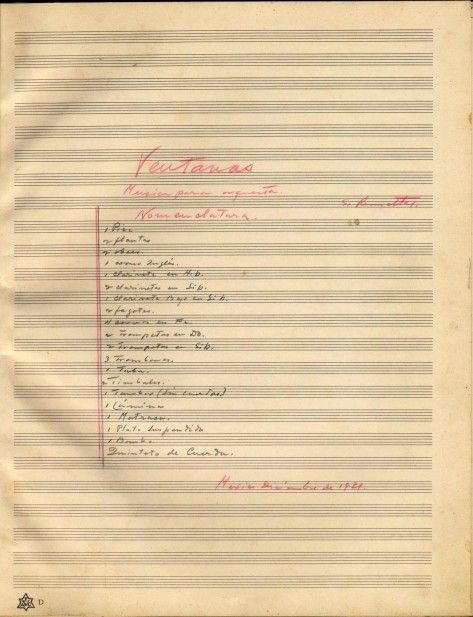 Ventanas
Musica para orquesta.
S. Revueltas.
Nomenclatura.
1 Picc
2 flautas
2 oboes.
1 corno Inglés.
1 Clarinete en Mib.
2 clarinetes en Sib.
1 Clarinete Bajo en Sib.
2 fagotes.
4 cornos en Fa.
2 Trompetas en DO.
2 Trompetas en Sib.
3 Trombones.
1 Tuba.
2 Timbales.
1 Tambor (sin cuerdas)
1 Lámina
1 Matraca.
1 Plato Suspendido
1 Bombo.
Quinteto de Cuerda.
Mexico Diciembre de 1931.
D